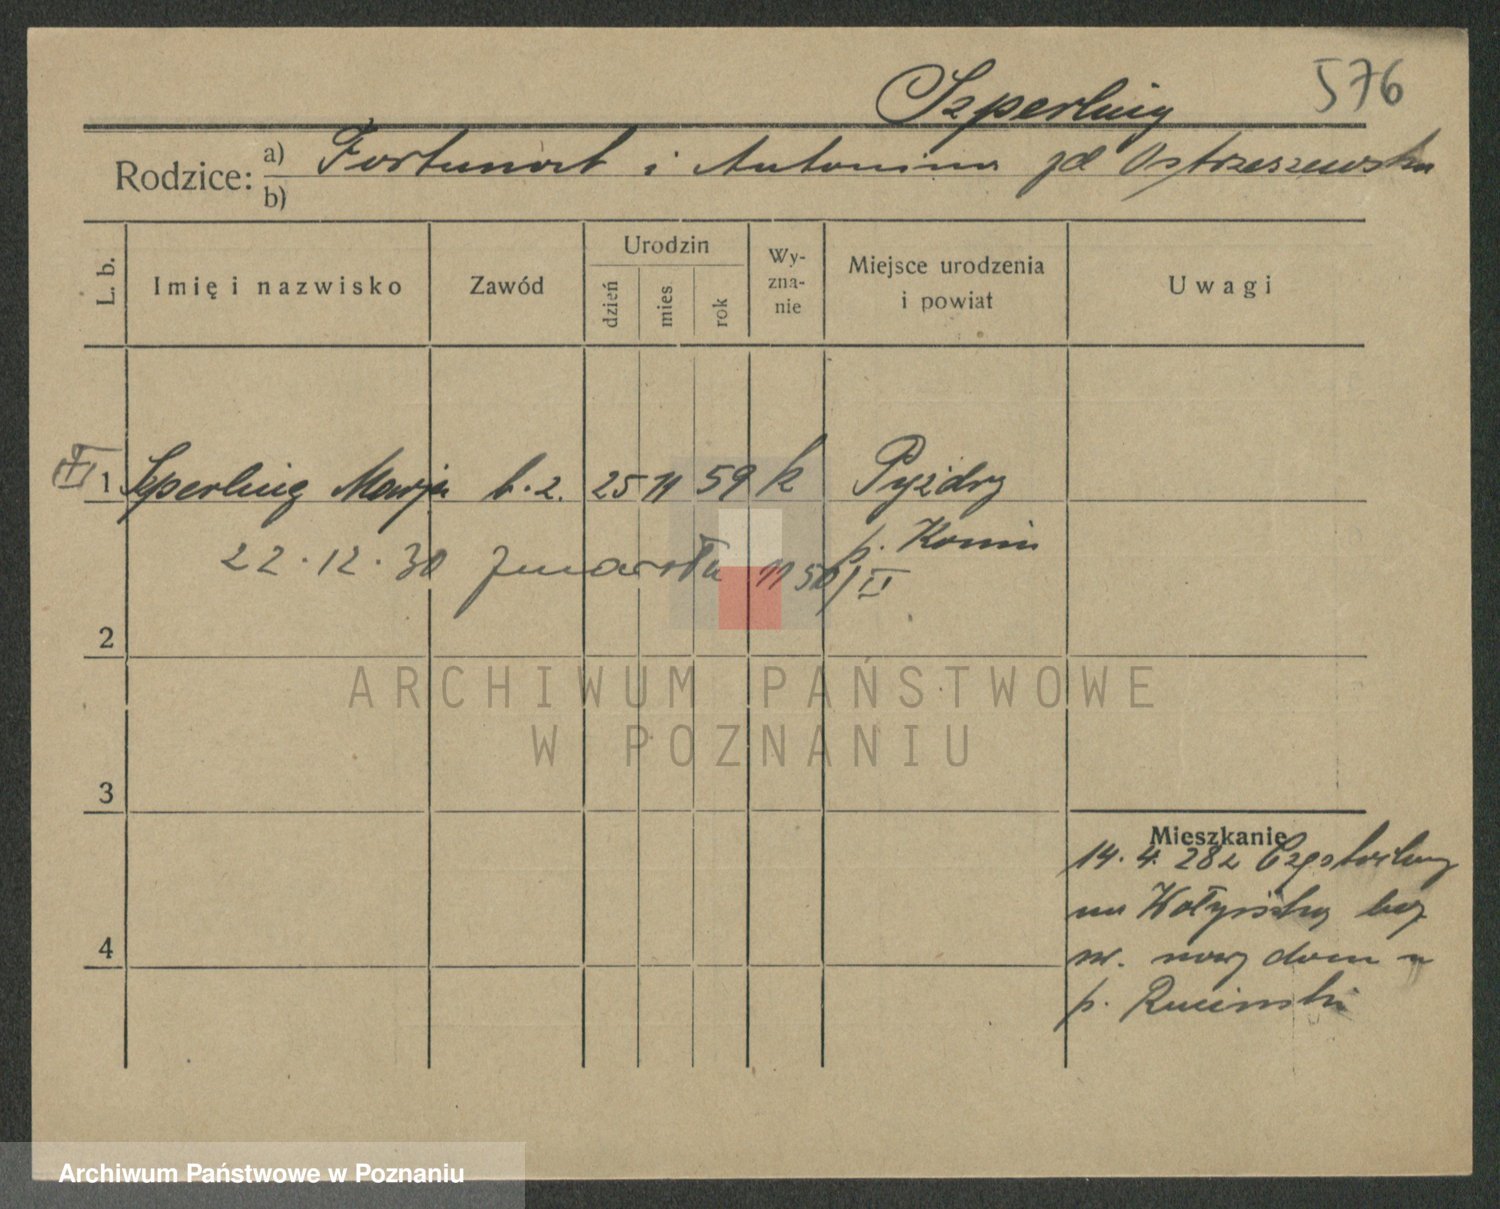 Szperling 576
Rodzice: a) Fortunat i Antonina zd Ostrzeszewska
b)
L. b. Imię i nazwisko Zawód Urodzin Wy-zna-nie Miejsce urodzenia i powiat Uwagi
dzień mies. rok
1 Szperling Marja b. z. 25 11 59 k Pyzdry
p. Konin
22.12.30 zmarła 11 50/II
2
ARCHIWUM PAŃSTWOWE
W POZNANIU
3
Mieszkanie
14. 4. 28 z
na bez
4
nr. nowy dom u
p. Rucinski
Archiwum Państwowe w Poznaniu